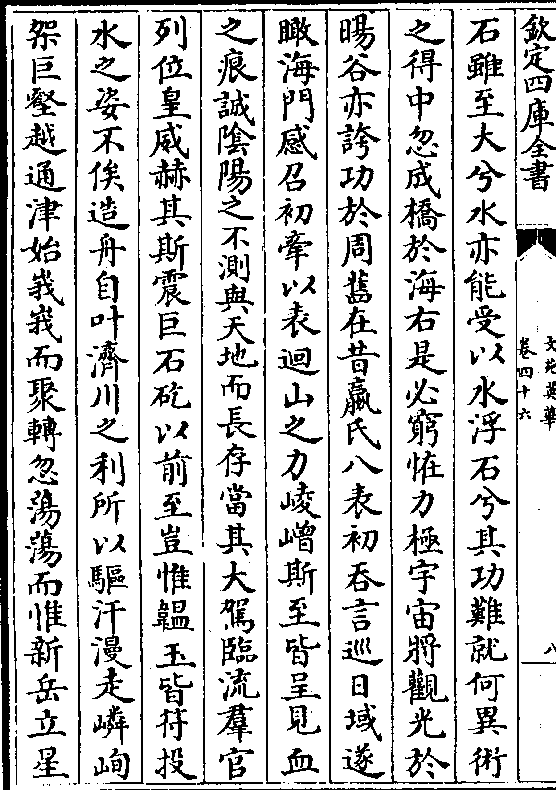 欽定四庫全書
文苑英華
卷四十六
八
石雖至大兮水亦能受以水浮石兮其功難就何異術
之得中忽成橋於海右是必窮恠力極宇宙將觀光於
暘谷亦誇功於周舊在昔嬴氏八表初吞言巡日域遂
瞰海門感召初牽以表迴山之力崚嶒斯至皆呈見血
之痕誠陰陽之不測與天地而長存當其大駕臨流羣官
列位皇威赫其斯震巨石矻以前至豈惟韞玉皆符投
水之姿不俟造舟自叶濟川之利所以驅汗漫走嶙峋
架巨壑越通津始峩峩而聚轉忽蕩蕩而惟新岳立星